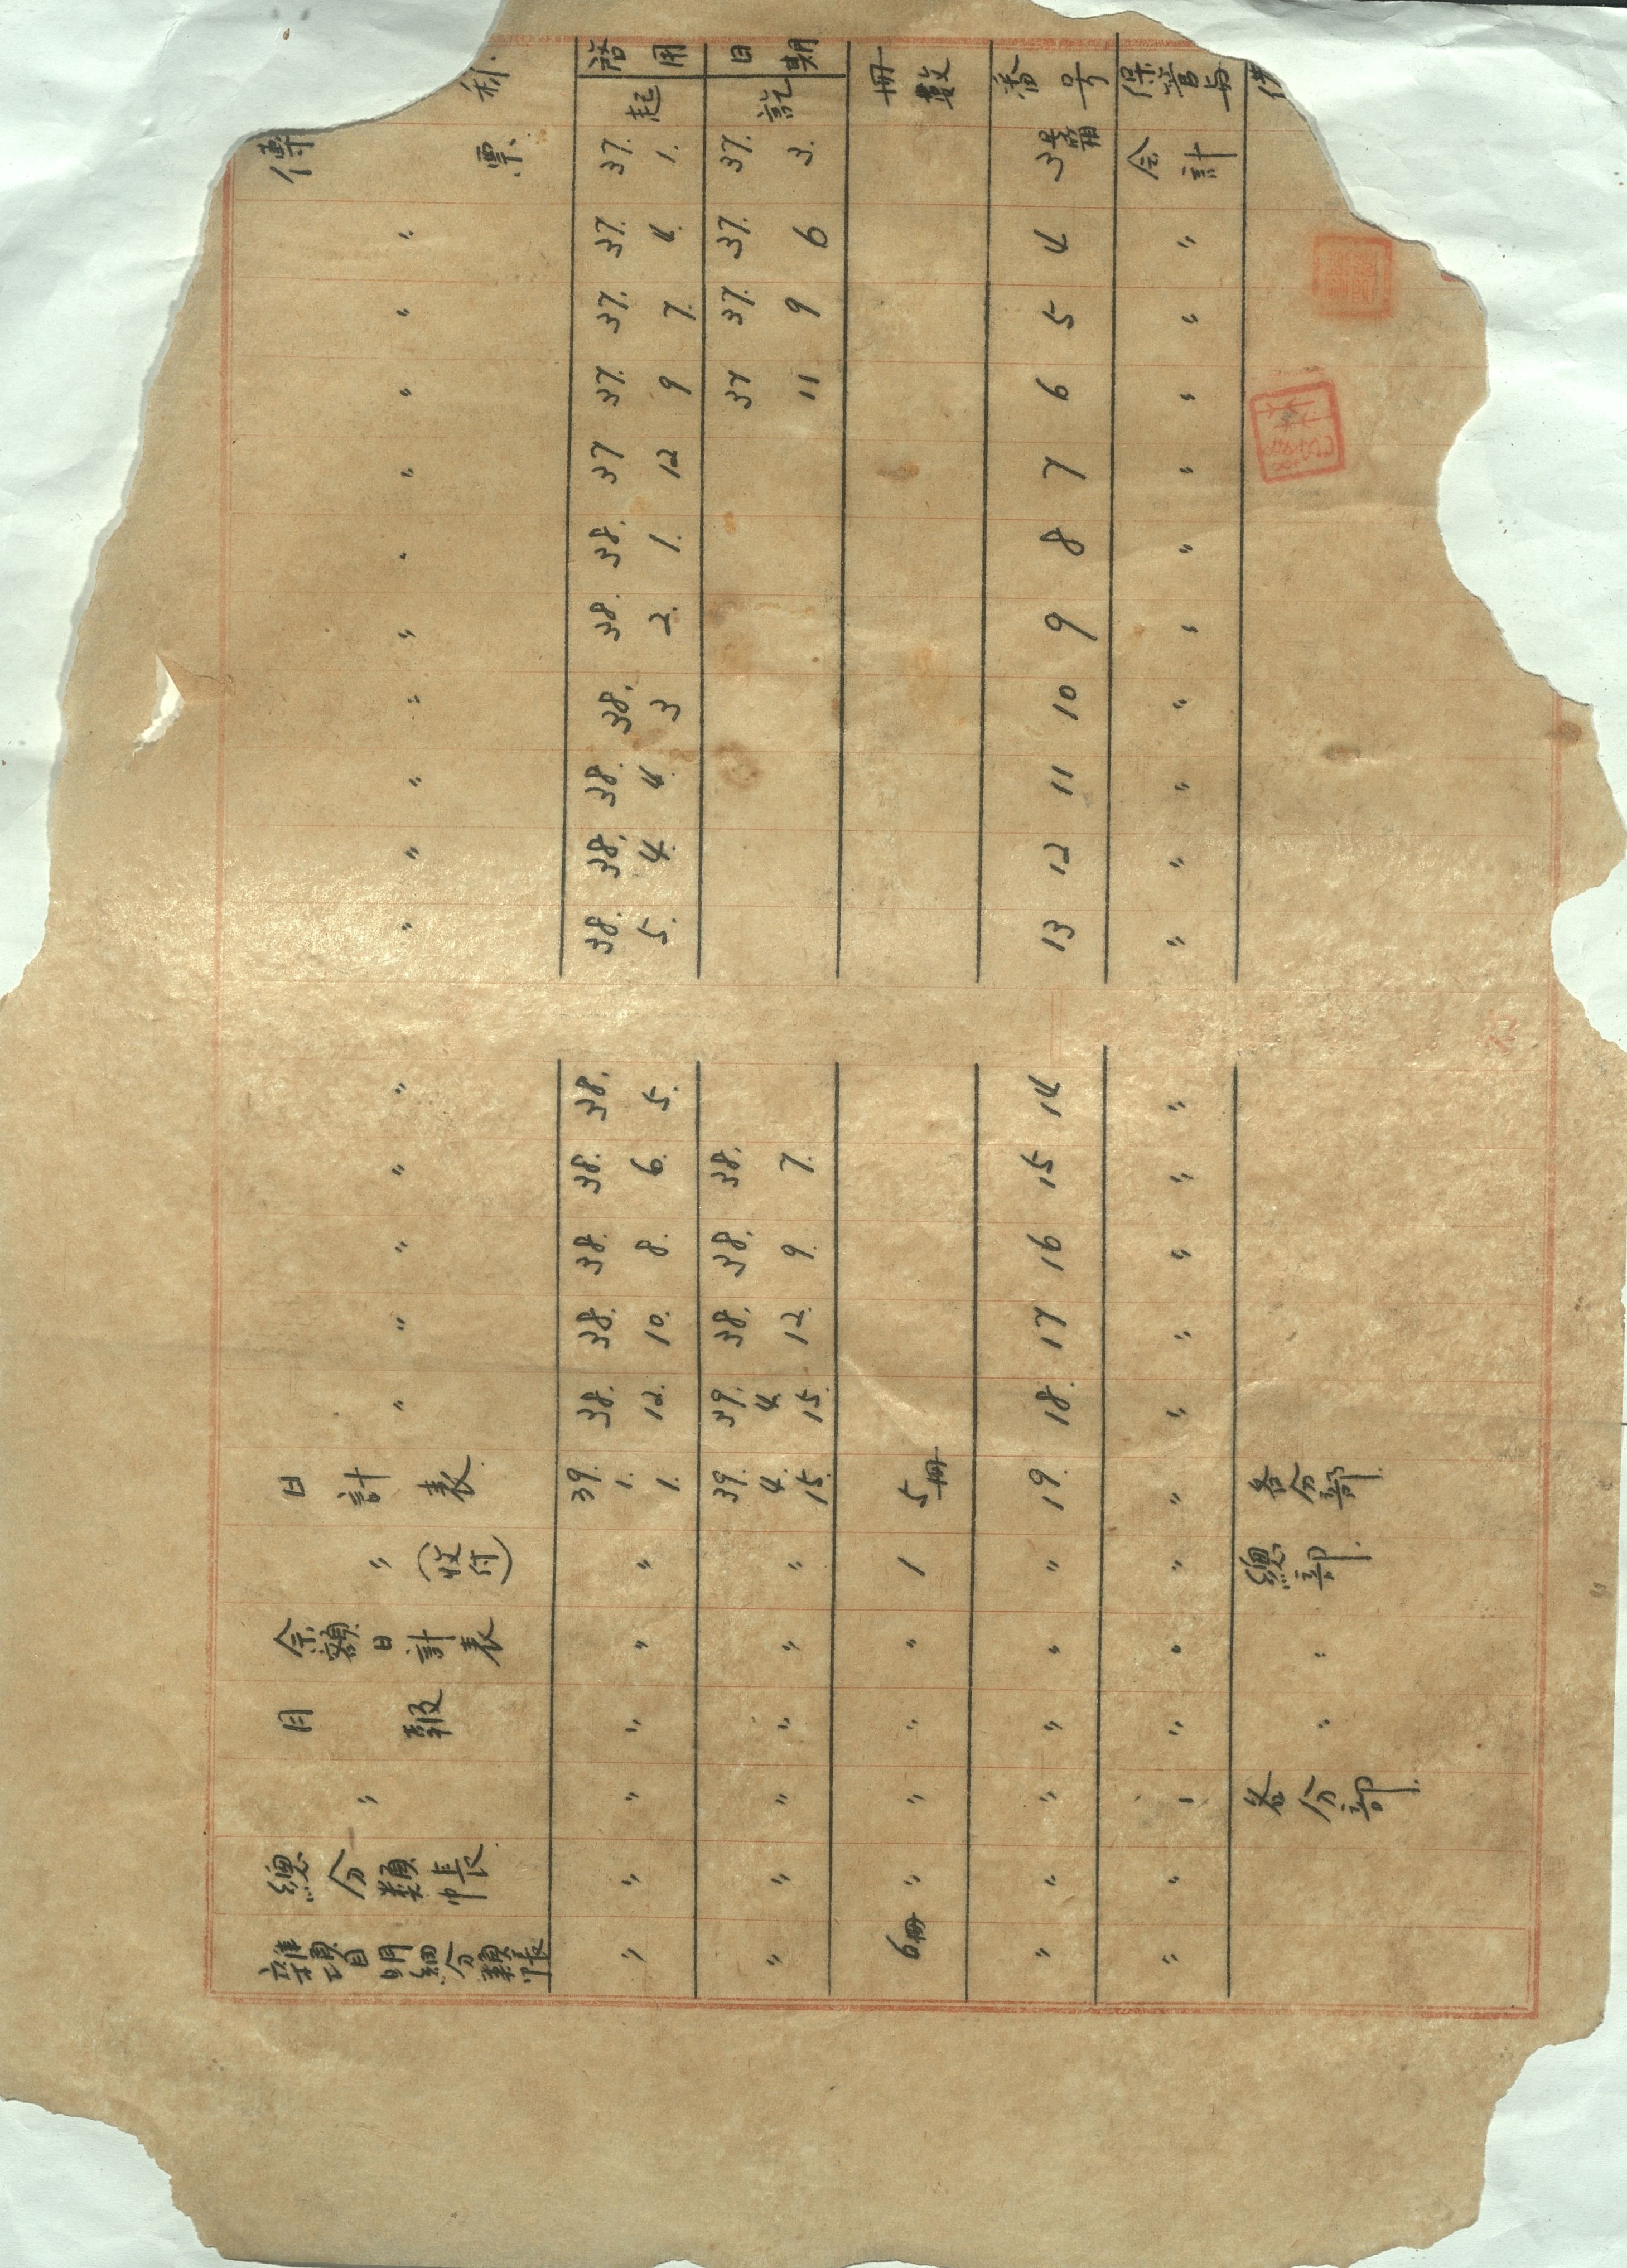 科 啓用日期 冊數 番号 保管 備
起 訖
傳票 37. 1. 37. 3. 3号箱 会計
〃 37. 4. 37. 6 4 〃
〃 37. 7. 37. 9 5 〃
〃 37. 9 37 11 6 〃
〃 37 12 7 〃
〃 38. 1. 8 〃
〃 38. 2. 9 〃
〃 38. 3 10 〃
〃 38. 4. 11 〃
〃 38. 4. 12 〃
〃 38. 5. 13 〃
〃 38. 5. 14 〃
〃 38. 6. 38. 7. 15 〃
〃 38. 8. 38. 9. 16 〃
〃 38. 10. 38. 12. 17 〃
〃 38. 12. 39. 4. 15. 18. 〃
日計表 39. 1. 1. 39. 4. 15. 5冊 19. 〃 各分部.
〃(收付) 〃 〃 1 〃 〃 總部.
余額日計表 〃 〃 〃 〃 〃 〃
月報 〃 〃 〃 〃 〃 〃
〃 〃 〃 〃 〃 〃 各分部.
總分類帳 〃 〃 〃 〃 〃
雜項目明細分類帳 〃 〃 6冊 〃 〃